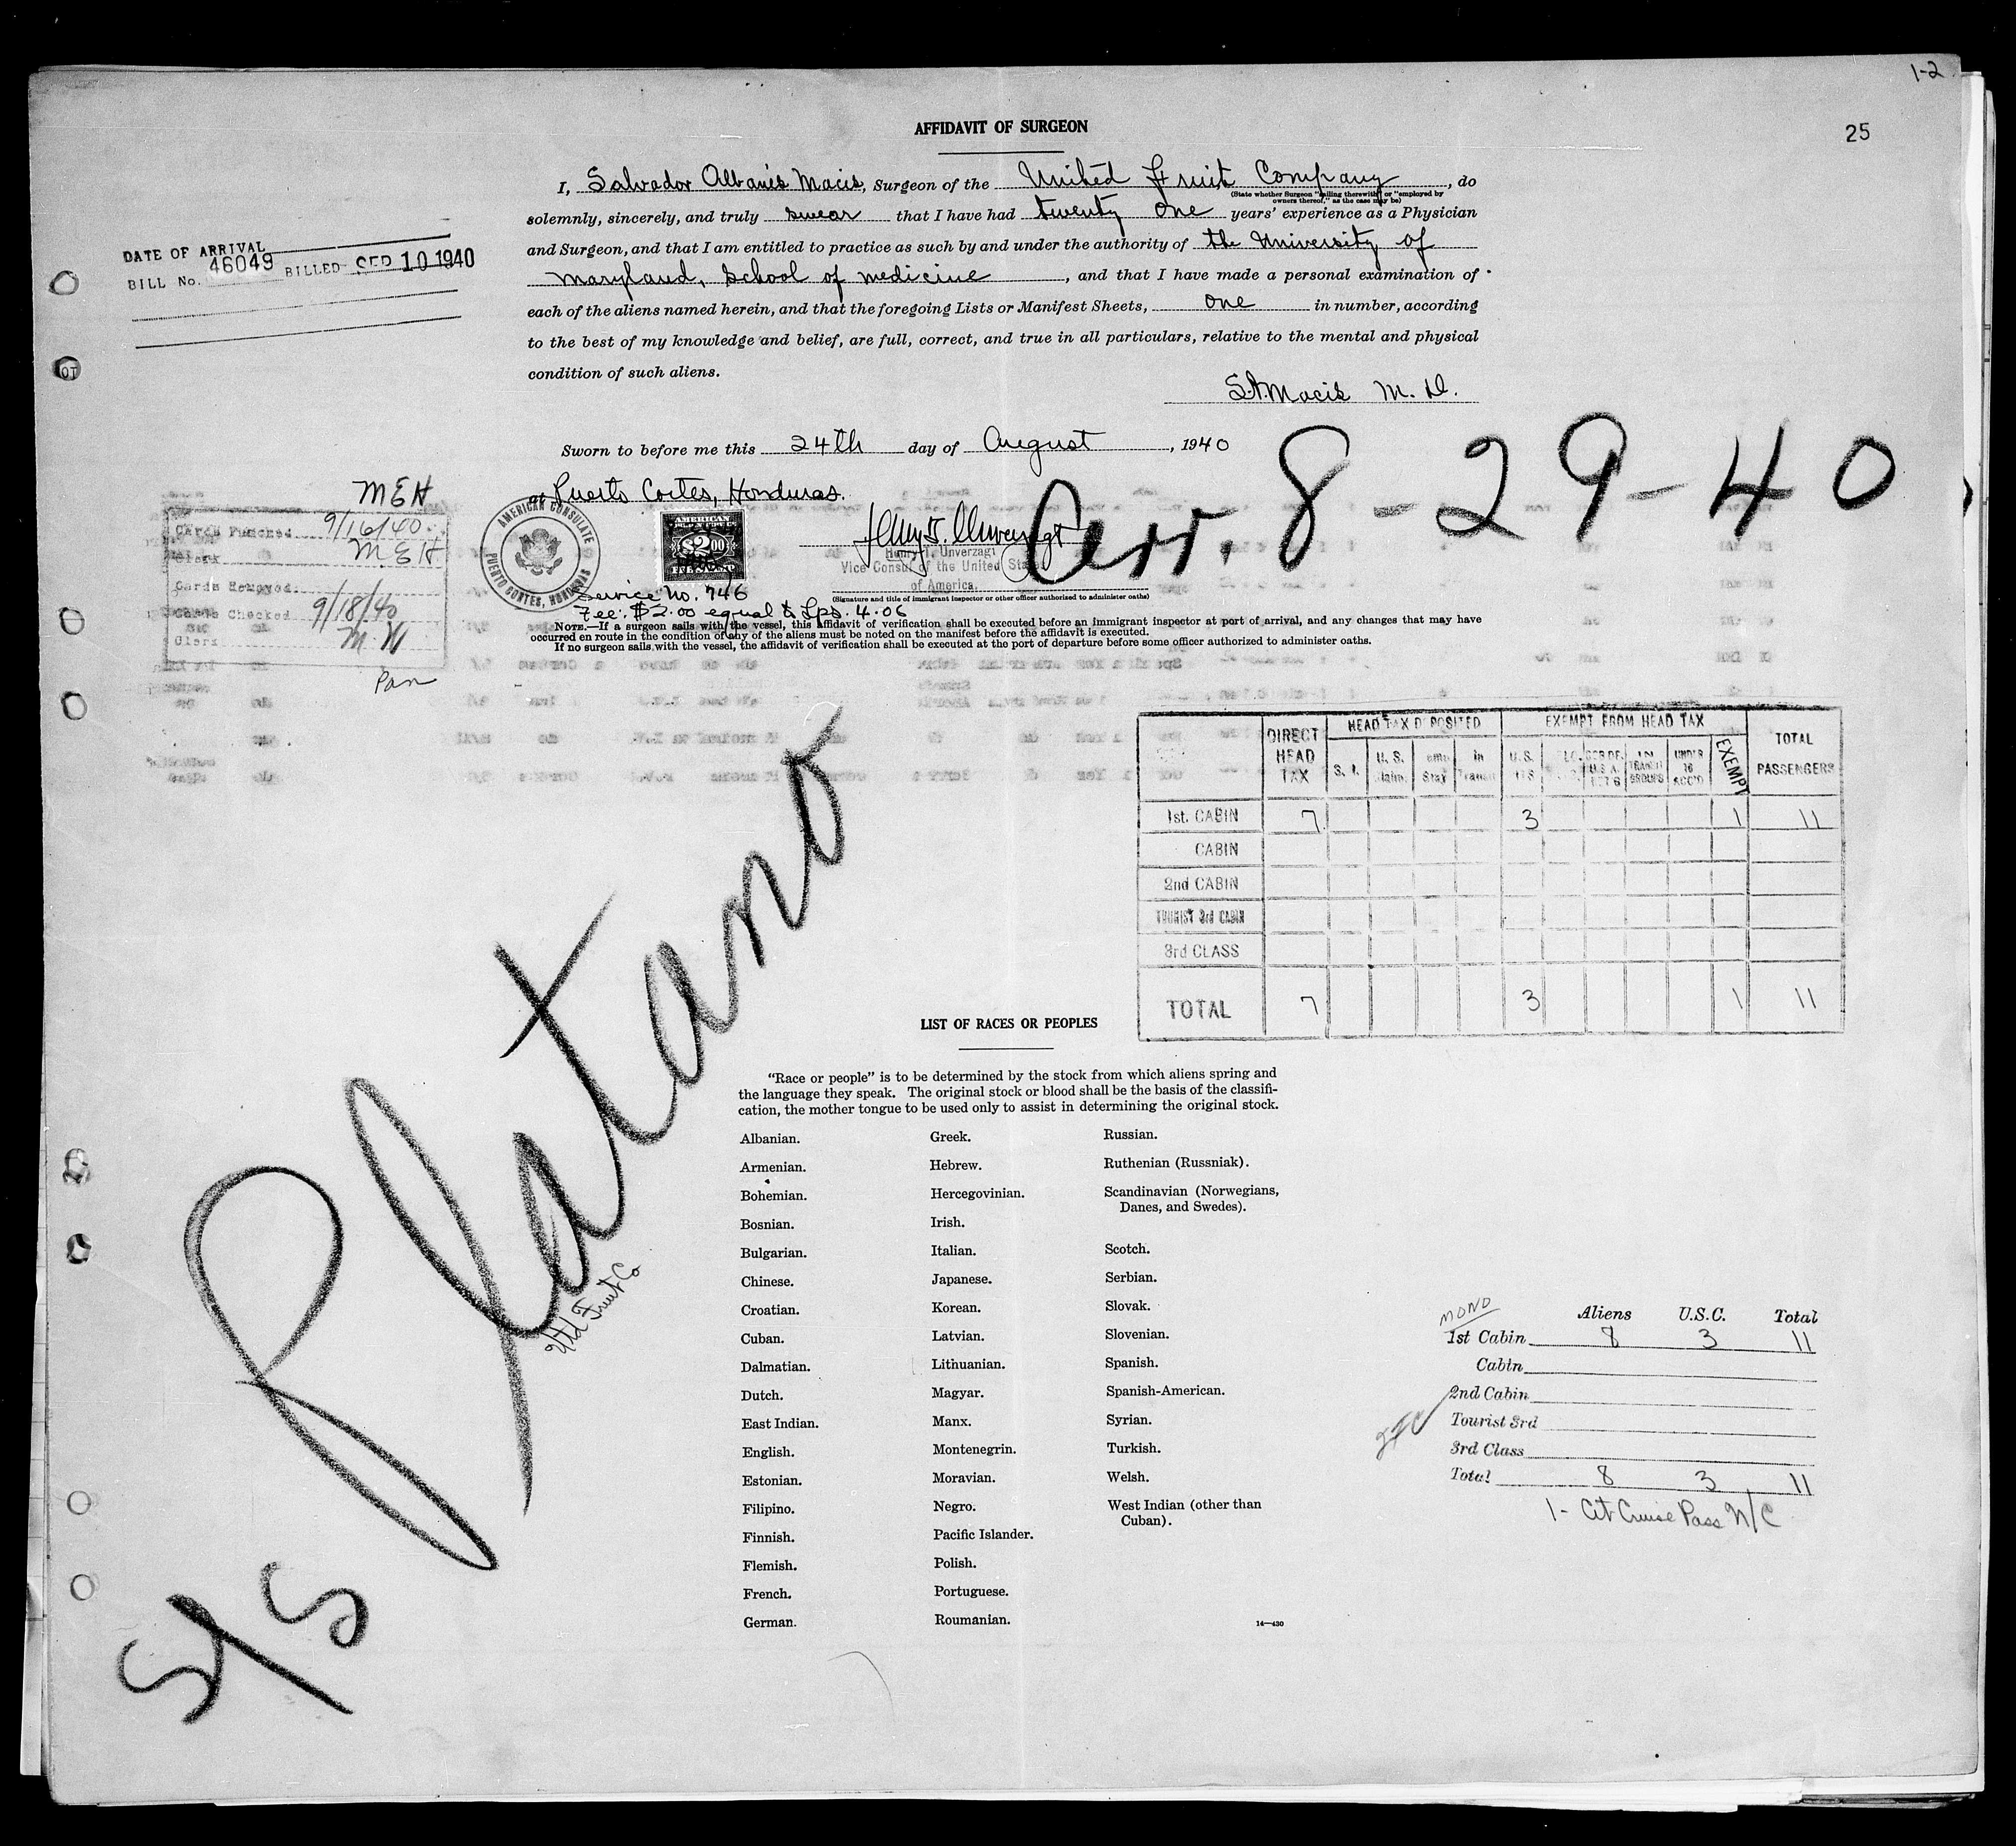 1-2
25
AFFIDAVIT OF SURGEON
I, Salvador Albanés Macis, Surgeon of the United Fruit Company, do
(State whether Surgeon "sailing therewith" or "employed by owners thereof," as the case may be)
solemnly, sincerely, and truly swear that I have had twenty one years' experience as a Physician
and Surgeon, and that I am entitled to practice as such by and under the authority of the University of
Maryland, School of medicine, and that I have made a personal examination of
each of the aliens named herein, and that the foregoing Lists or Manifest Sheets, one in number, according
to the best of my knowledge and belief, are full, correct, and true in all particulars, relative to the mental and physical
condition of such aliens.
S.A. Macis M. D.
DATE OF ARRIVAL
BILL No. 46049 BILLED SEP 10 1940
Sworn to before me this 24th day of August, 1940
at Puerto Cortes, Honduras.
Arr. 8-29-40
MEH
Cards Punched 9/16/40
Clerk M.E.H.
Cards Removed
Cards Checked 9/18/40
Clerk M W
Pan
AMERICAN CONSULATE
PUERTO CORTES, HONDURAS
AMERICAN
$2.00
Henry T. Unverzagt
Henry T. Unverzagt
Vice Consul of the United States
of America.
(Signature and title of immigrant inspector or other officer authorized to administer oaths)
Service No. 746
Fee: $2.00 equal to Lps. 4.06
NOTE.—If a surgeon sails with the vessel, this affidavit of verification shall be executed before an immigrant inspector at port of arrival, and any changes that may have
occurred en route in the condition of any of the aliens must be noted on the manifest before the affidavit is executed.
If no surgeon sails with the vessel, the affidavit of verification shall be executed at the port of departure before some officer authorized to administer oaths.
DIRECT HEAD TAX
HEAD TAX DEPOSITED
EXEMPT FROM HEAD TAX
TOTAL PASSENGERS
S. I. U. S. Stay In Transit U.S. UNDER 16 EXEMPT
1st. CABIN 7 3 1 11
CABIN
2nd CABIN
TOURIST 3rd CABIN
3rd CLASS
TOTAL 7 3 1 11
S/S Platano
Utd Fruit Co
LIST OF RACES OR PEOPLES
"Race or people" is to be determined by the stock from which aliens spring and
the language they speak. The original stock or blood shall be the basis of the classifi-
cation, the mother tongue to be used only to assist in determining the original stock.
Albanian.
Armenian.
Bohemian.
Bosnian.
Bulgarian.
Chinese.
Croatian.
Cuban.
Dalmatian.
Dutch.
East Indian.
English.
Estonian.
Filipino.
Finnish.
Flemish.
French.
German.
Greek.
Hebrew.
Hercegovinian.
Irish.
Italian.
Japanese.
Korean.
Latvian.
Lithuanian.
Magyar.
Manx.
Montenegrin.
Moravian.
Negro.
Pacific Islander.
Polish.
Portuguese.
Roumanian.
Russian.
Ruthenian (Russniak).
Scandinavian (Norwegians,
Danes, and Swedes).
Scotch.
Serbian.
Slovak.
Slovenian.
Spanish.
Spanish-American.
Syrian.
Turkish.
Welsh.
West Indian (other than
Cuban).
14—430
MOND
Aliens U.S.C. Total
1st Cabin 8 3 11
Cabin
2nd Cabin
Tourist 3rd
3rd Class
Total 8 3 11
1 - Cit Cruise Pass N/C